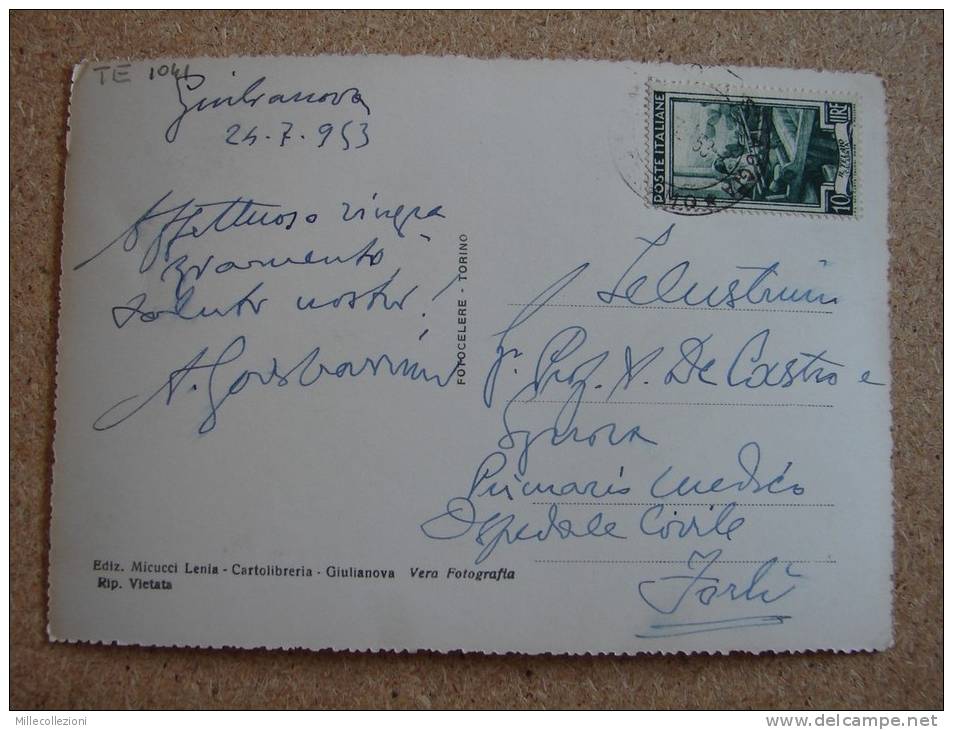 TE 1041
Giulianova
24.7.953
Affettuoso ringra
ziamento,
saluti nostri!
POSTE ITALIANE
10 LIRE
FOTOCELERE - TORINO
Prof. V. De Castro e
Signora
Primario medico
Ospedale Civile
Forlì
Ediz. Micucci Lenia - Cartolibreria - Giulianova Vera Fotografia
Rip. Vietata
Millecollezioni
www.delcampe.net